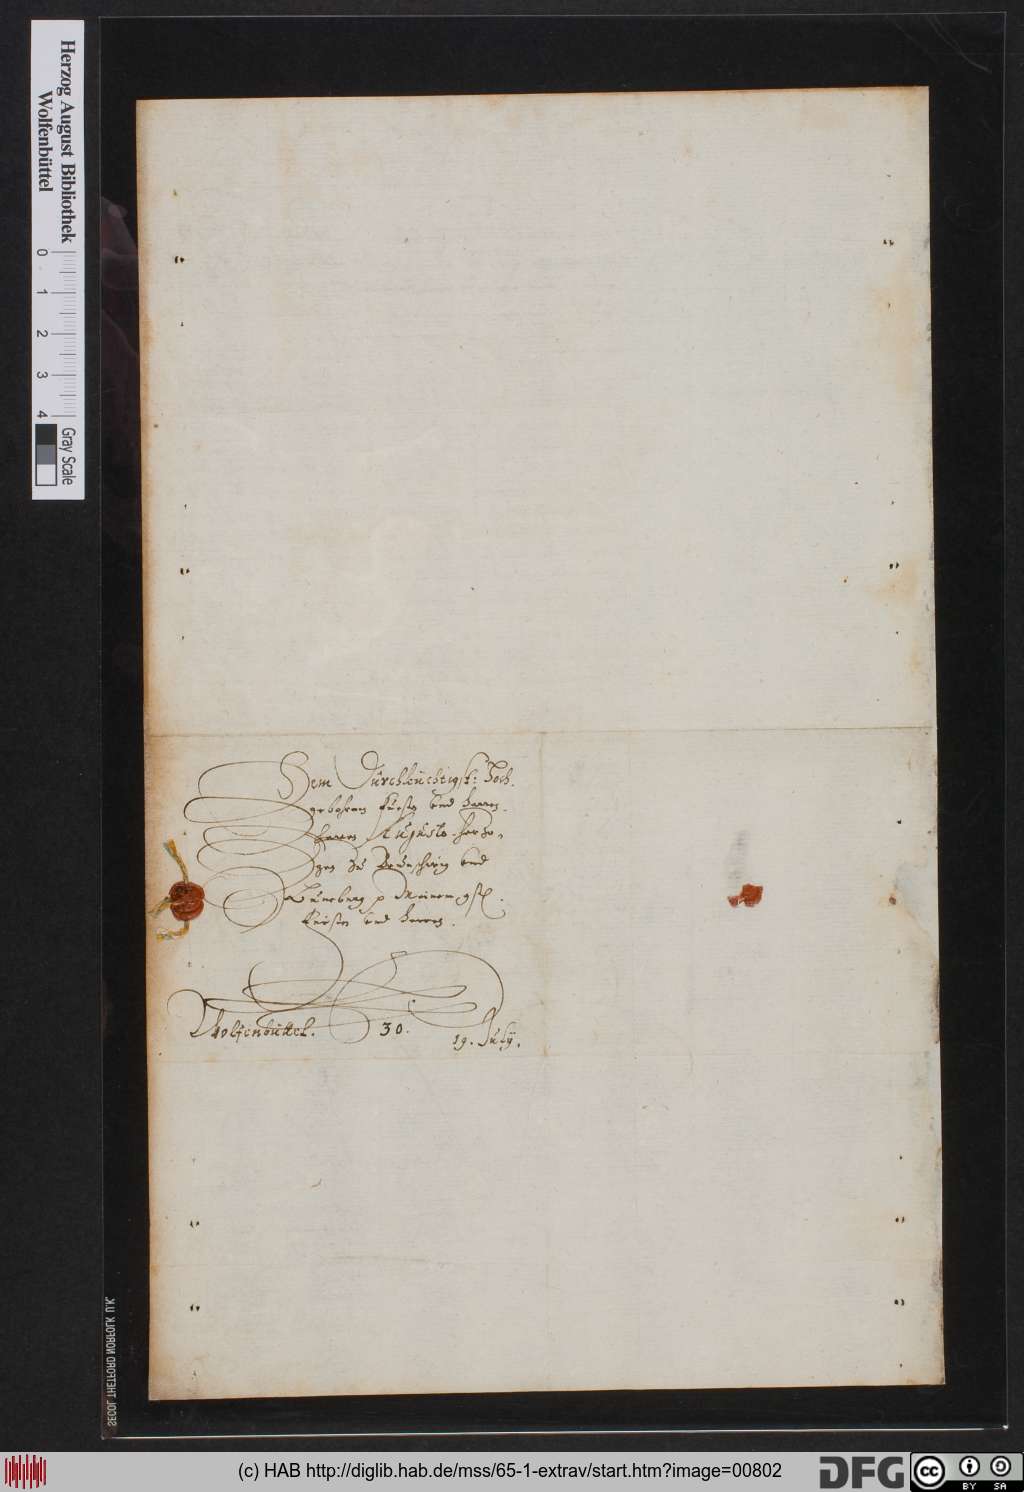 Herzog August Bibliothek
Wolfenbüttel
0 1 2 3 4
Gray Scale
Dem Durchleuchtigst: Hoch-
gebohrnen Fürsten und Herren
Herren Augusto Herzo-
gen zu Braunschweig und
Lüneburg p Meinem gst.
Fürsten und Herren.
Wolfenbüttel.
30.
19. July.
SECOL THETFORD NORFOLK U.K.
(c) HAB http://diglib.hab.de/mss/65-1-extrav/start.htm?image=00802
DFG
cc BY SA